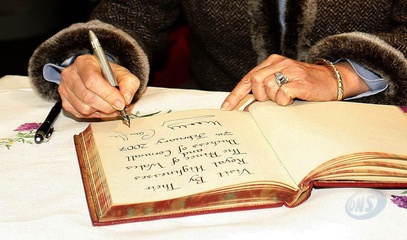 Visit By Their
Royal Highnesses
The Prince of Wales
and
Duchess of Cornwall
7th February 2007
DNS